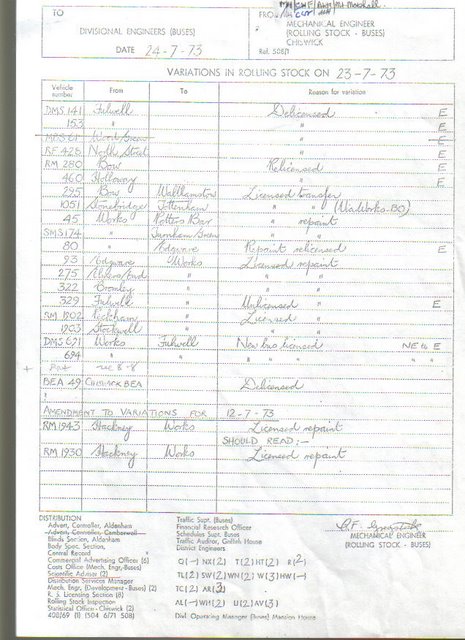 TO
DIVISIONAL ENGINEERS (BUSES)
DATE 24-7-73
FROM
MECHANICAL ENGINEER
(ROLLING STOCK - BUSES)
CHISWICK
Ref. 508/1
VARIATIONS IN ROLLING STOCK ON 23-7-73
Vehicle number From To Reason for variation
DMS 141 Fulwell Delicensed E
153 " " E
MBS 61 Wood Green " E
RF 428 North Street " E
RM 280 Bow Relicensed E
460 Holloway " E
295 Bow Walthamstow Licensed transfer
1051 Stonebridge Tottenham " " (Via Works-80)
45 Works Potters Bar " repaint
SMS 174 " Turnham Green " "
80 " Edgware Repaint relicensed E
93 Edgware Works Licensed repaint
275 " "
322 Bromley " " "
329 Fulwell " Unlicensed " E
RM 1202 Peckham " Licensed "
1903 Stockwell " " "
DMS 671 Works Fulwell New bus licensed NE to E
694 " " " " " " "
BEA 49 CHISWICK BEA Delicensed
AMENDMENT TO VARIATIONS FOR 12-7-73
RM 1943 Hackney Works Licensed repaint
SHOULD READ:-
RM 1930 Hackney Works Licensed repaint
DISTRIBUTION
Advert. Controller, Aldenham
Advert. Controller, Camberwell
Blinds Section, Aldenham
Body Spec. Section,
Central Record
Commercial Advertising Officer (6)
Costs Office (Mech. Engr. Buses)
Scientific Adviser (2)
Distribution Services Manager
Mech. Engr. (Development - Buses) (2)
R. S. Licensing Section (8)
Rolling Stock Inspection
Statistical Office - Chiswick (2)
Traffic Supt. (Buses)
Financial Research Officer
Schedules Supt. Buses
Traffic Auditor, Griffith House
District Engineers
Q(-) NX(2) T(2) HT(2) R(2)
TL(2) SW(2) WN(2) W(3) HW(-)
TC(2) AR(3)
AL(-) WH(2) U(2) AV(3)
Divl. Operating Manager (Buses) Mansion House
MECHANICAL ENGINEER
(ROLLING STOCK - BUSES)